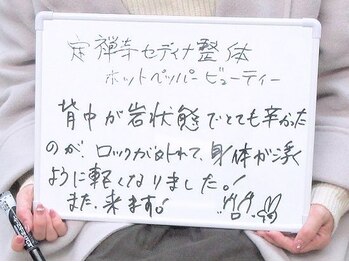 定禅寺セディナ整体
ホットペッパービューティー
背中が岩状態でとても辛かった
のが、ロックが外れて、身体が浮く
ように軽くなりました!
また、来ます!